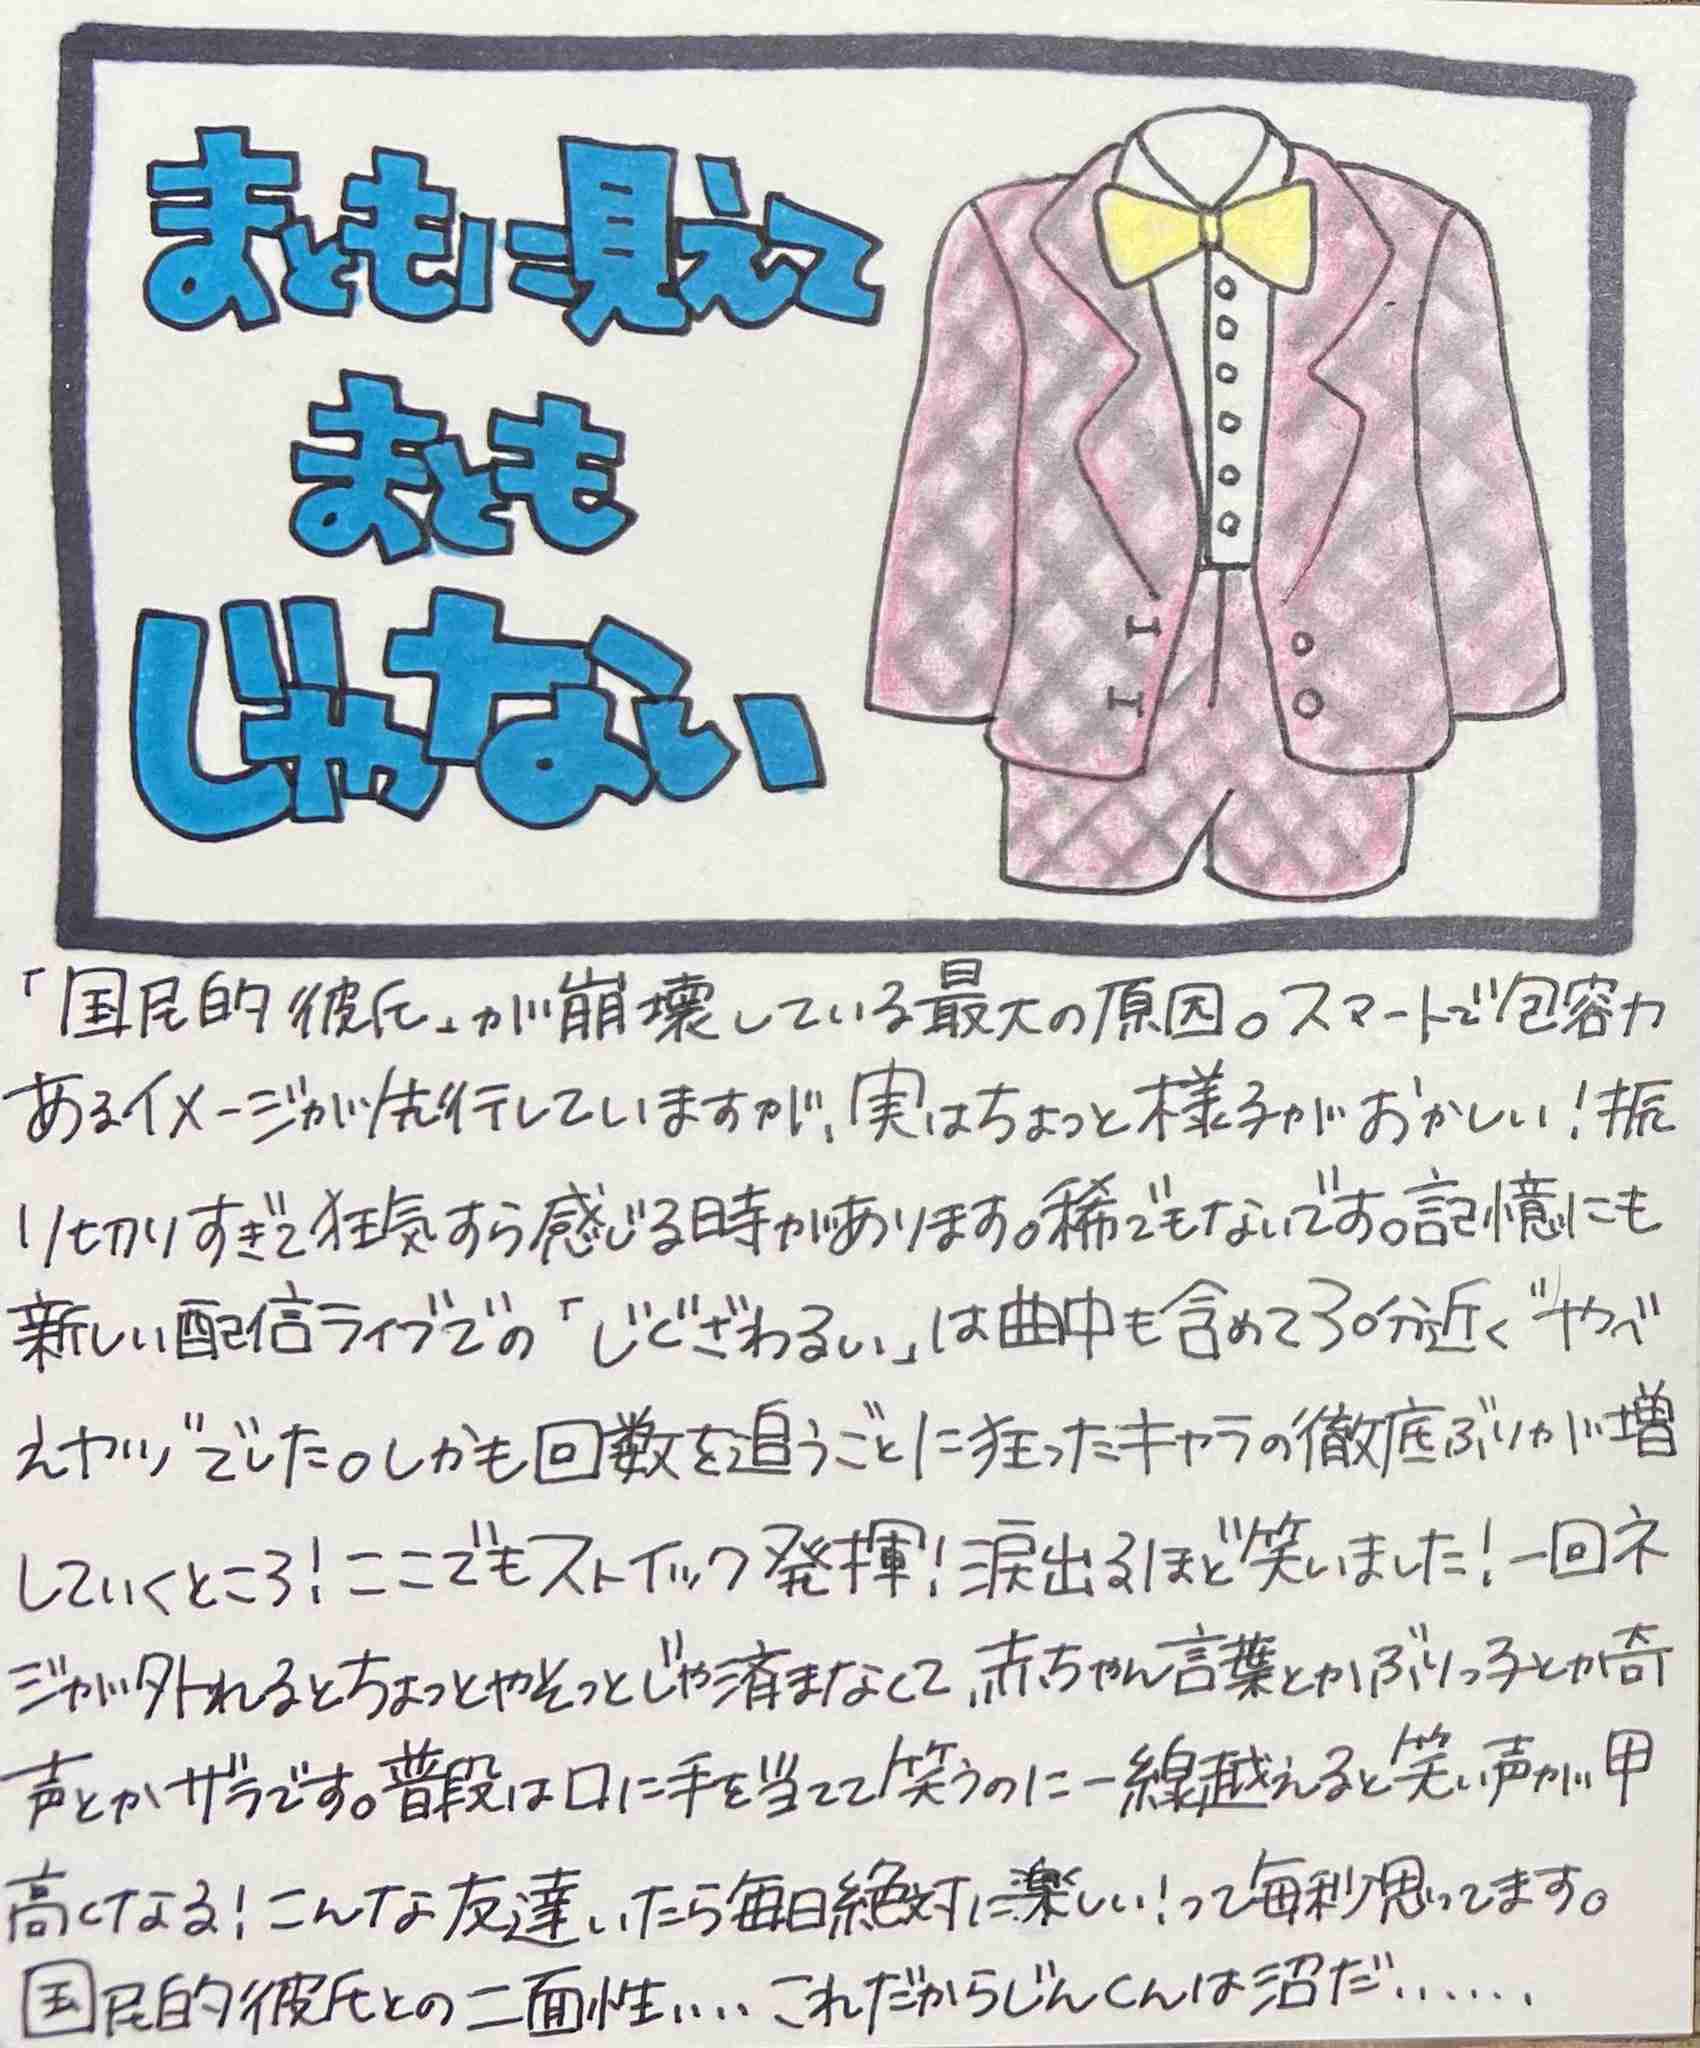 まともに見えて
まとも
じゃない
「国民的彼氏」が崩壊している最大の原因。スマートで包容力
あるイメージが先行していますが、実はちょっと様子がおかしい！振
り切りすぎて狂気すら感じる時があります。稀でもないです。記憶にも
新しい配信ライブでの「じぐざわるい」は曲中も含めて30分近く"やべ
えヤツ"でした。しかも回数を追うごとに狂ったキャラの徹底ぶりが増
していくところ！ここでもストイック発揮！涙出るほど笑いました！一回ネ
ジが外れるとちょっとやそっとじゃ済まなくて、赤ちゃん言葉とかぶりっ子とか奇
声とかザラです。普段は口に手を当てて笑うのに一線越えると笑い声が甲
高くなる！こんな友達いたら毎日絶対に楽しい！って毎秒思ってます。
国民的彼氏との二面性....これだからじんくんは沼だ......